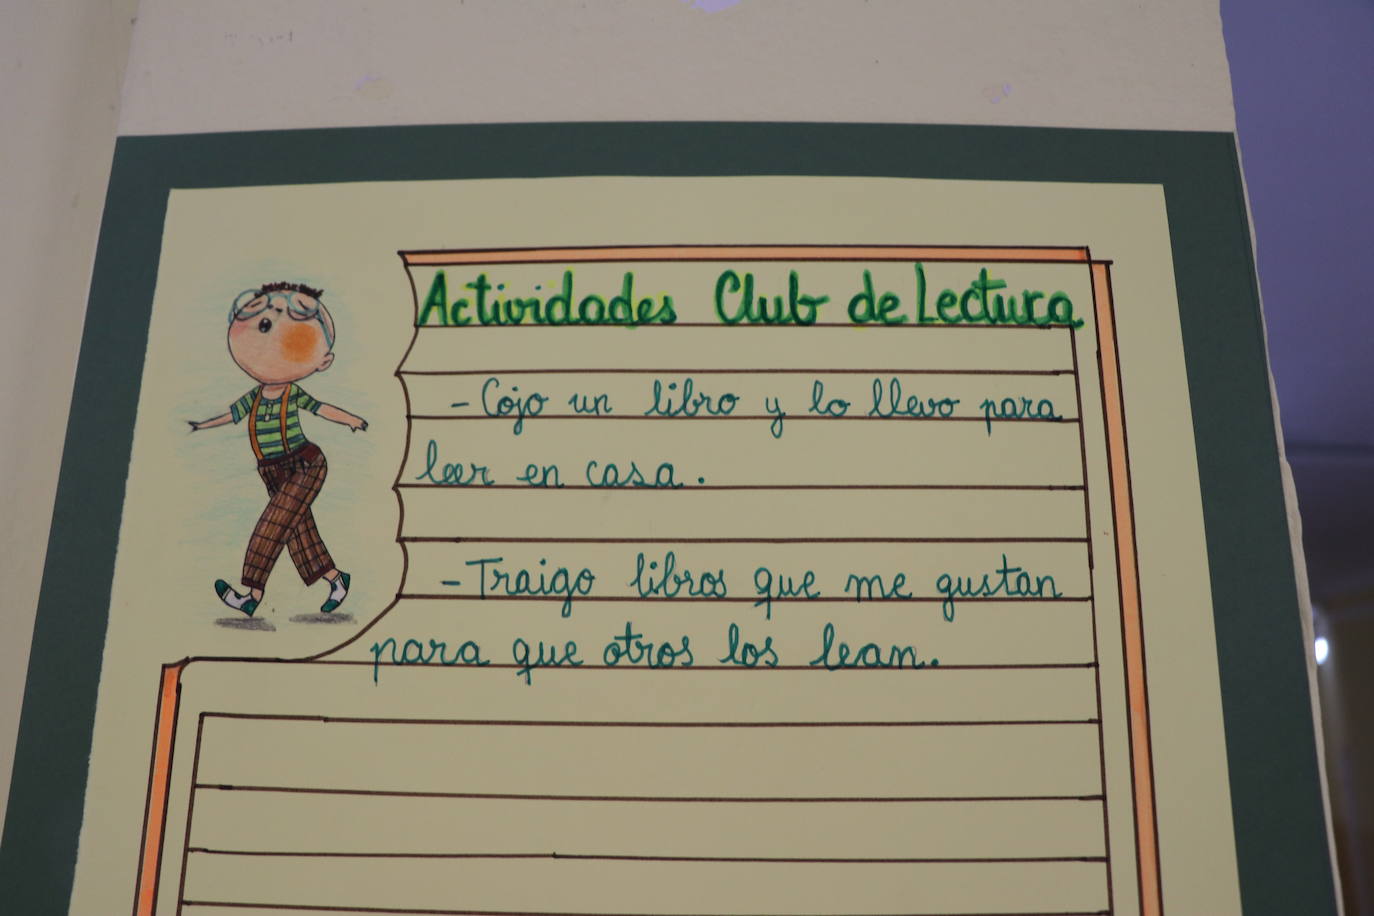 Actividades Club de Lectura
- Cojo un libro y lo llevo para
leer en casa.
- Traigo libros que me gustan
para que otros los lean.